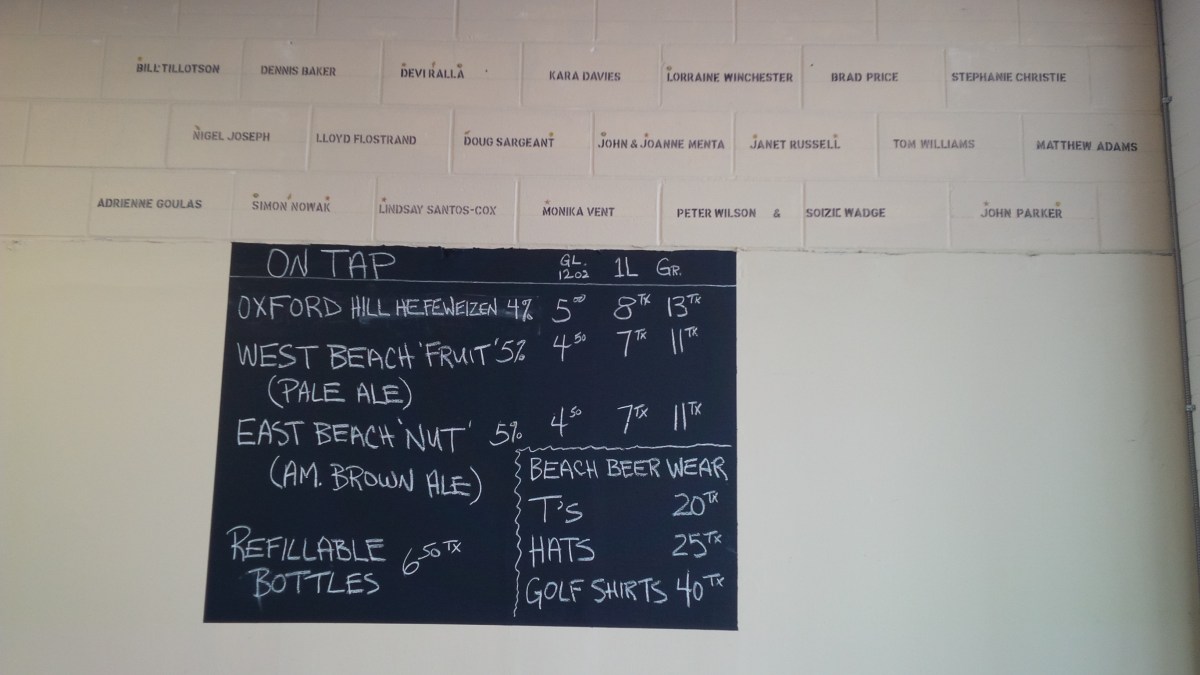 BILL TILLOTSON DENNIS BAKER DEVI RALLA KARA DAVIES LORRAINE WINCHESTER BRAD PRICE STEPHANIE CHRISTIE
NIGEL JOSEPH LLOYD FLOSTRAND DOUG SARGEANT JOHN & JOANNE MENTA JANET RUSSELL TOM WILLIAMS MATTHEW ADAMS
ADRIENNE GOULAS SIMON NOWAK LINDSAY SANTOS-COX MONIKA VENT PETER WILSON & SOIZIC WADGE JOHN PARKER
ON TAP GL. 12OZ 1L GR.
OXFORD HILL HEFEWEIZEN 4% 5⁰⁰ 8TX 13TX
WEST BEACH 'FRUIT' 5% 4⁵⁰ 7TX 11TX
(PALE ALE)
EAST BEACH 'NUT' 5% 4⁵⁰ 7TX 11TX
(AM. BROWN ALE)
REFILLABLE BOTTLES 6⁵⁰ TX
BEACH BEER WEAR
T'S 20TX
HATS 25TX
GOLF SHIRTS 40TX